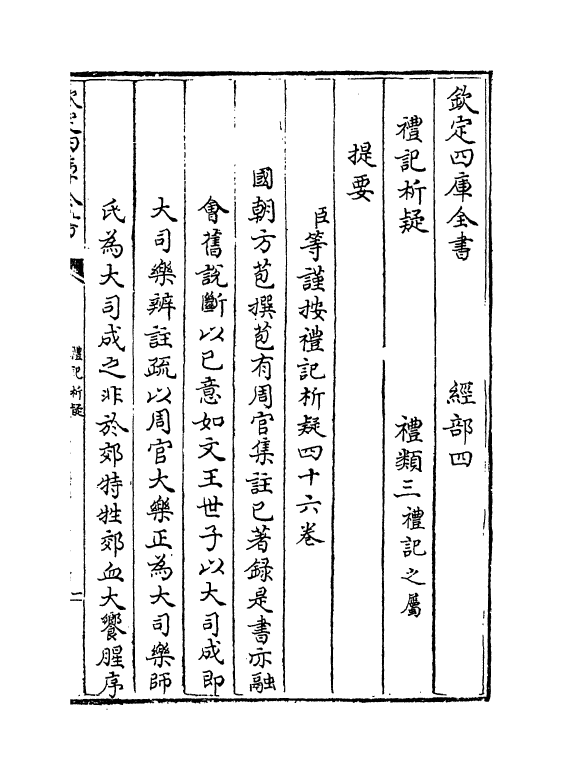 欽定四庫全書　經部四
禮記析疑　禮類三禮記之屬
提要
臣等謹按禮記析疑四十六卷
國朝方苞撰苞有周官集註已著録是書亦融
會舊說斷以已意如文王世子以大司成即
大司樂辨註疏以周官大樂正為大司樂師
氏為大司成之非於郊特牲郊血大饗腥序
欽定四庫全書
禮記析疑